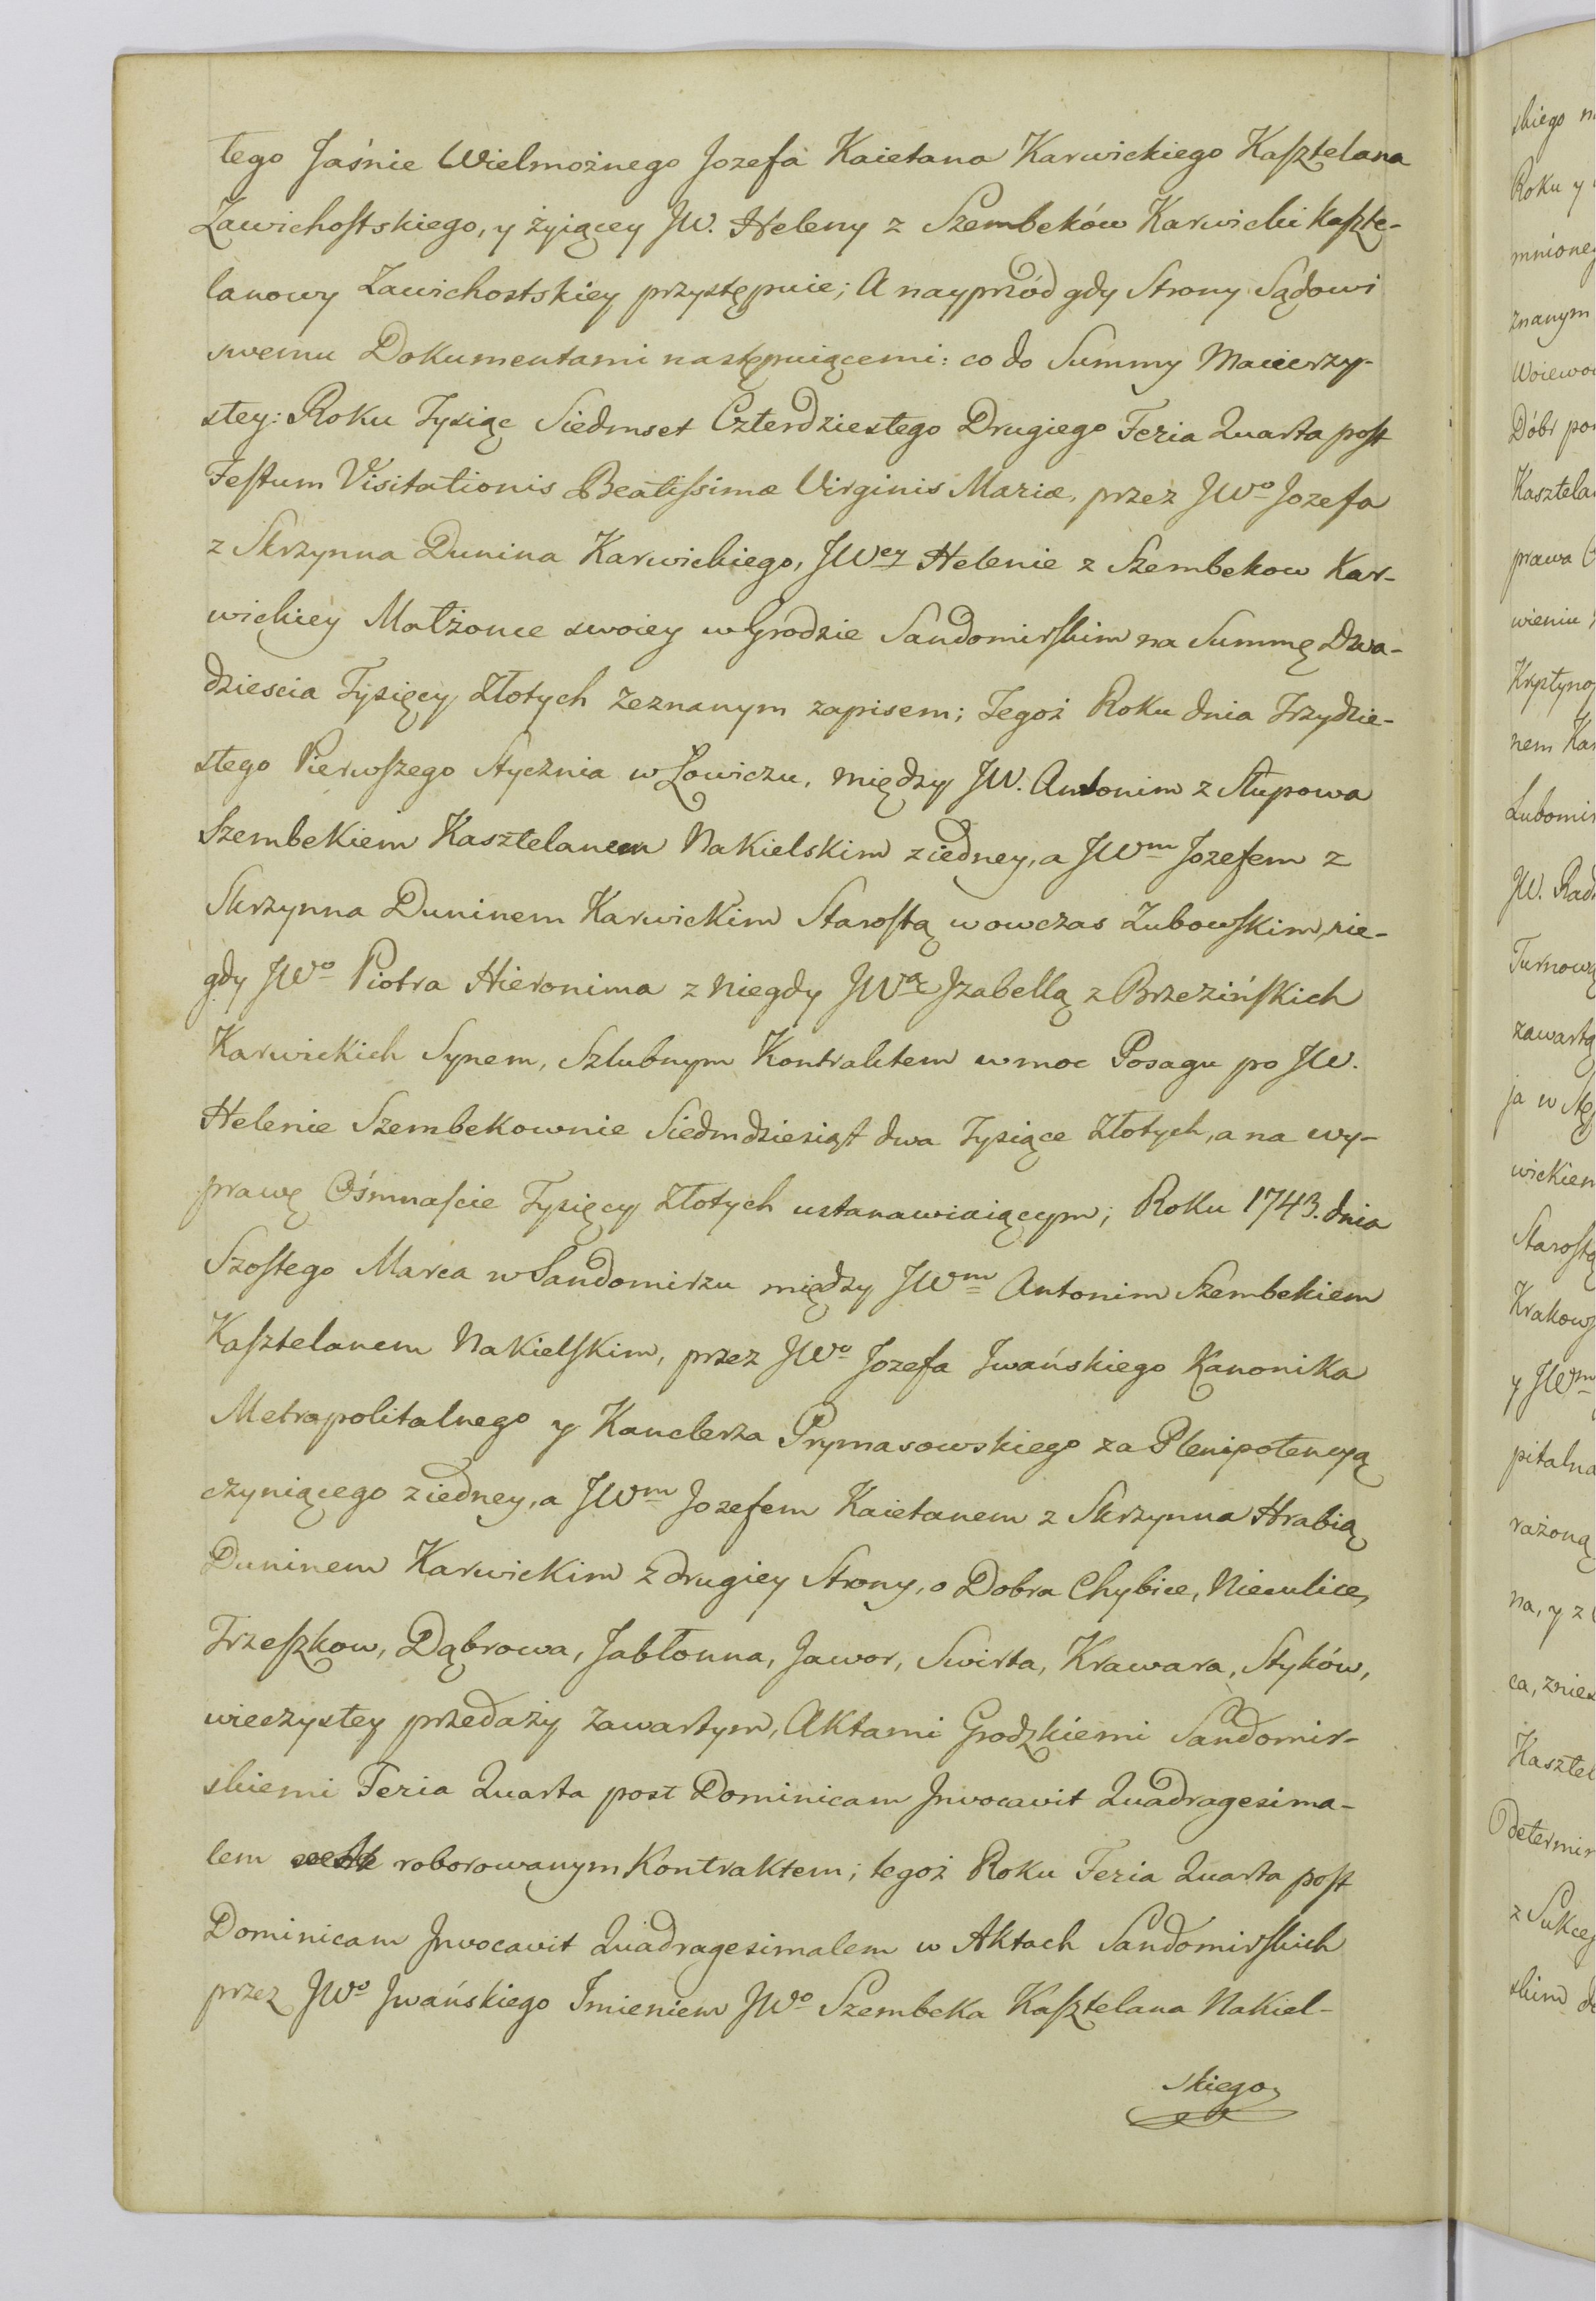 tego Jaśnie Wielmożnego Jozefa Kaietana Karwickiego Kasztelana
Zawichostskiego, y żyiącey JW. Heleny z Szembeków Karwicki Kaszte-
lanowy Zawichostskiey przystępuie; A nayprzód gdy Strony Sądowi
swemu Dokumentami następuiącemi: co do Summy Macierzy-
stey: Roku Tysiąc Siedmset Czterdziestego Drugiego Feria Quarta post
Festum Visitationis Beatissimæ Virginis Mariæ, przez JWo Jozefa
z Skrzynna Dunina Karwickiego, JWey Helenie z Szembekow Kar-
wickiey Małżonce swoiey w Grodzie Sandomirskim na Summę Dwa-
dziescia Tysięcy Złotych zeznanym zapisem; Tegoż Roku dnia Trzydzie-
stego Pierwszego Stycznia w Łowiczu, między JW. Antonim z Słupowa
Szembekiem Kasztelanem Nakielskim z iedney, a JWm Jozefem z
Skrzynna Duninem Karwickim Starostą wowczas Zubowskim, nie-
gdy JWo Piotra Hieronima z niegdy JWą Jzabellą z Brzezińskich
Karwickich Synem, Szlubnym Kontraktem w moc Posagu po JW.
Helenie Szembekownie Siedmdziesiąt dwa Tysiące Złotych, a na wy-
prawę Ośmnaście Tysięcy Złotych ustanawiaiącym; Roku 1743. dnia
Szostego Marca w Sandomirzu między JWm Antonim Szembekiem
Kasztelanem Nakielskim, przez JWo Jozefa Jwańskiego Kanonika
Metropolitalnego y Kanclerza Prymasowskiego za Plenipotencyą
czyniącego z iedney, a JWm Jozefem Kaietanem z Skrzynna Hrabią
Duninem Karwickim z drugiey Strony, o Dobra Chybice, Nieculice,
Trzeszkow, Dąbrowa, Jabłonna, Jawor, Swirta, Krawara, Styków,
wieczystey przedaży zawartym, Aktami Grodzkiemi Sandomir-
skiemi Feria Quarta post Dominicam Jnvocavit Quadragesima-
lem roborowanym Kontraktem; tegoż Roku Feria Quarta post
Dominicam Jnvocavit Quadragesimalem w Aktach Sandomirskich
przez JWo Jwańskiego Imieniem JWo Szembeka Kasztelana Nakiel-
skiego